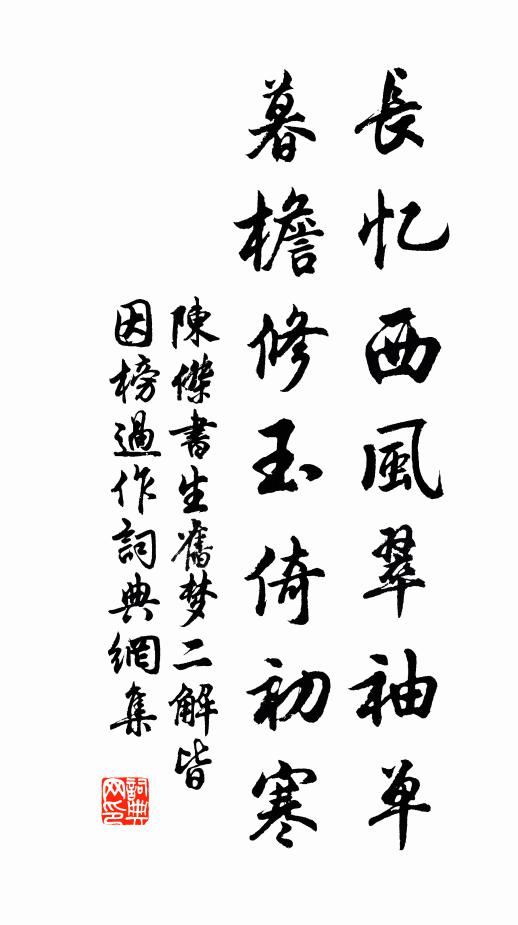 長忆西風翠袖单
暮檐修玉倚初寒
陳傑書生舊梦二解皆
因榜過作詞典網集
詞典
网印